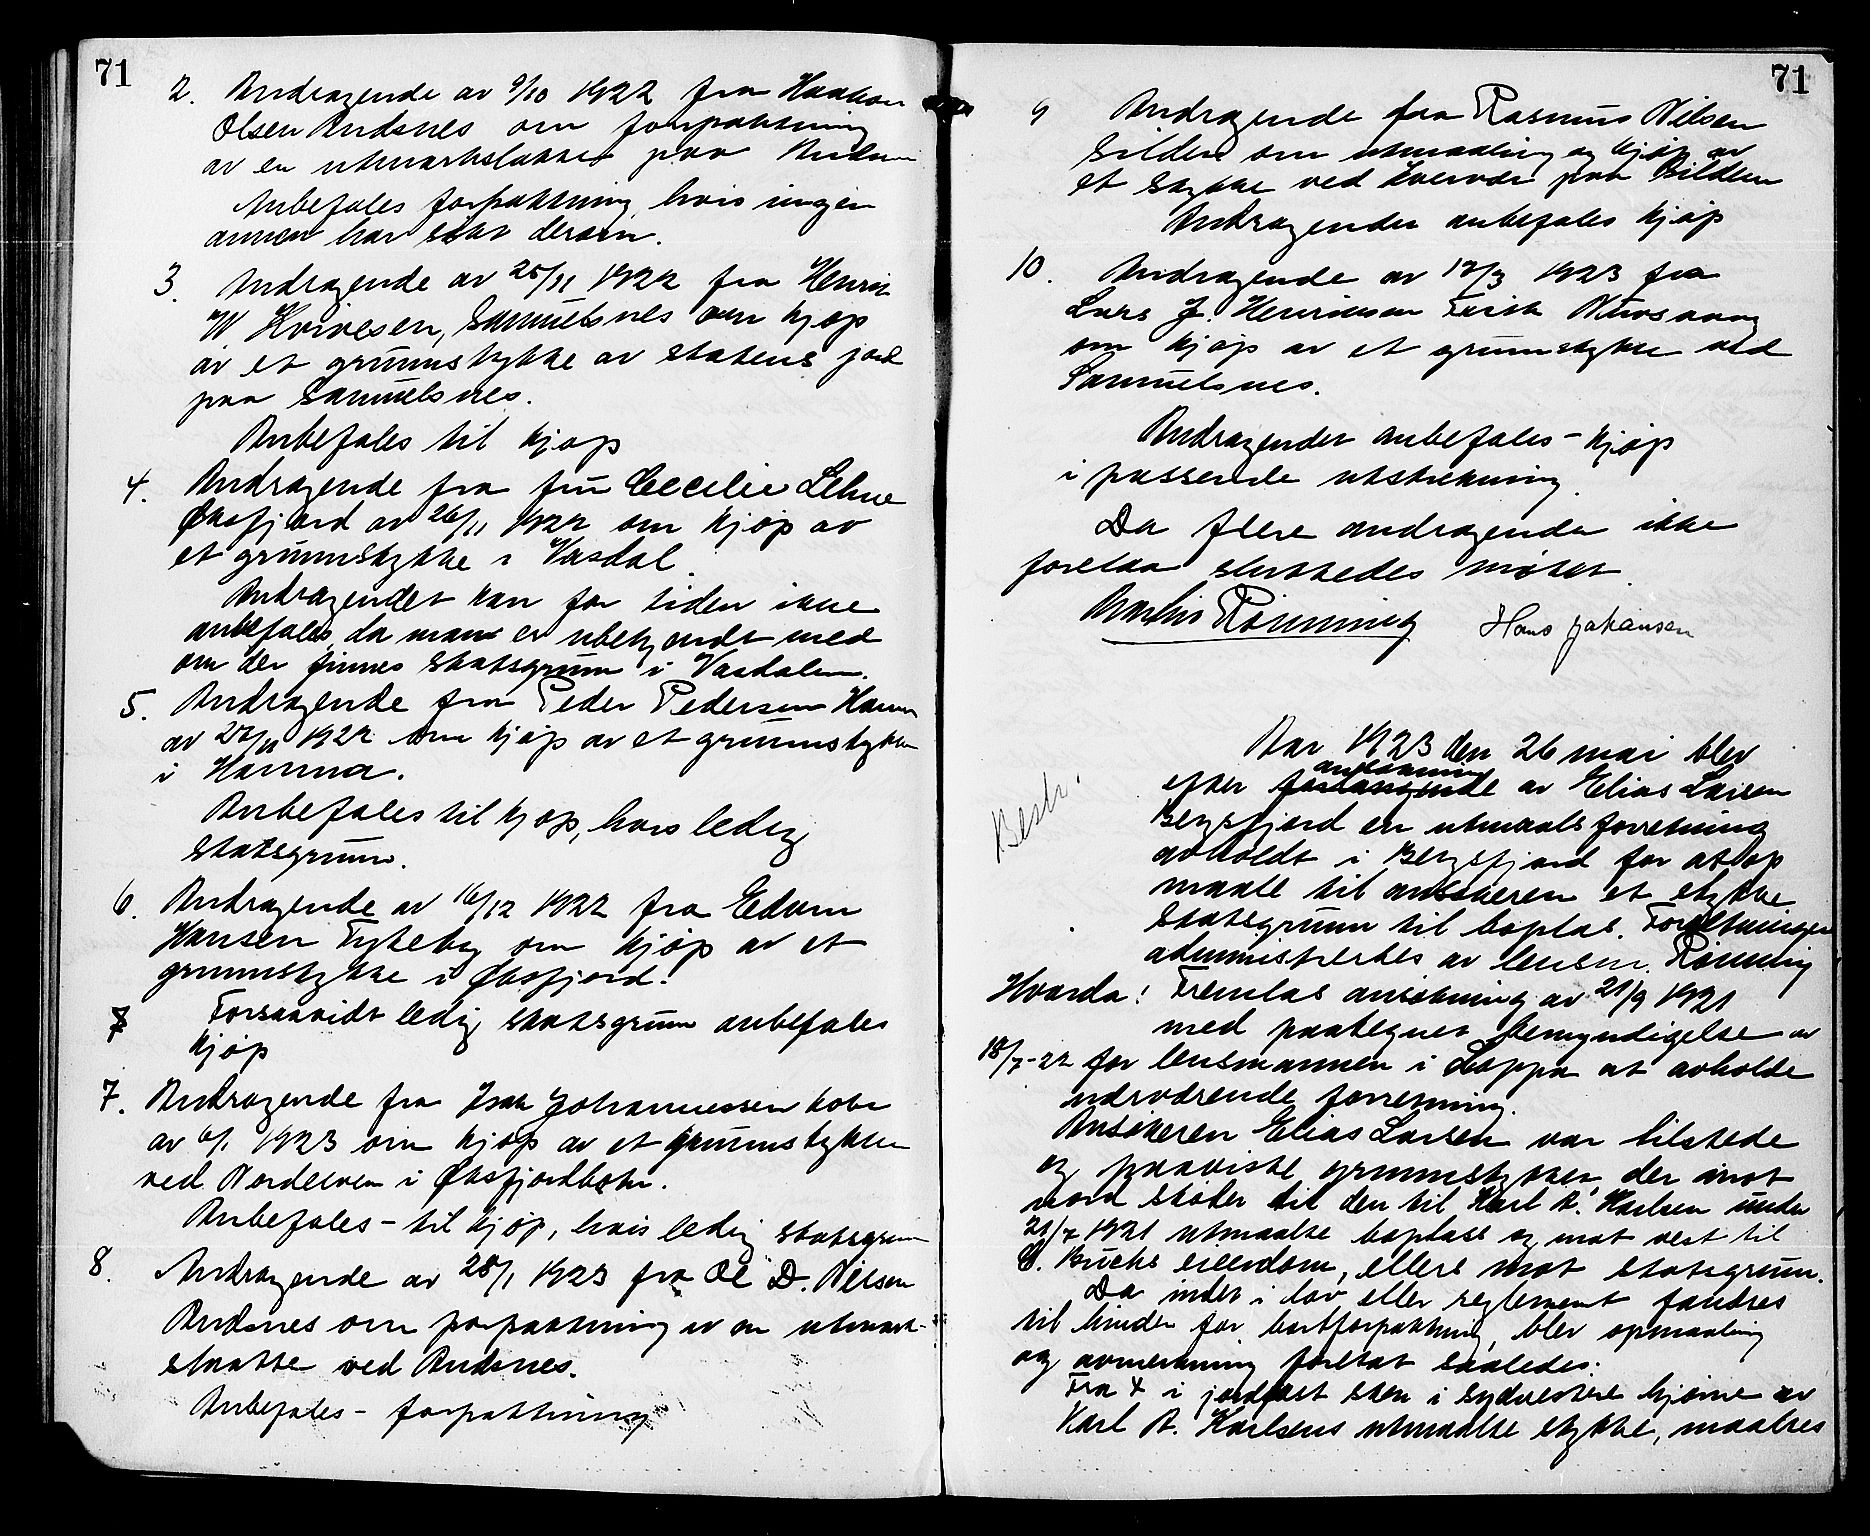 71
2. Andragende av 9/10 1922 fra Haakon
Olsen Andsnes om forpaktning
av en utmarksslaatte paa Andsnes
Anbefales forpaktning, hvis ingen
annen har slaat derom.
3. Andragende av 25/11 1922 fra Henrik
W. Kvivesen, Samuelsnes om kjøp
av et grunnstykke av statens jord
paa Samuelsnes.
Anbefales til kjøp
4. Andragende fra fru Cecilie Lehne
Øksfjord av 26/11 1922 om kjøp av
et grunnstykke i Vasdal.
Andragendet kan for tiden ikke
anbefales, da man er ubekjendt med
om der finnes statsgrunn i Vasdalen.
5. Andragende fra Peder Pedersen Hamn
av 27/11 1922 om kjøp av et grunnstykke
i Hamna.
Anbefales til kjøp, hvis ledig
statsgrunn.
6. Andragende av 16/12 1922 fra Edvin
Hansen Tykeby om kjøp av et
grunnstykke i Øksfjord.
7 Forsaavidt ledig statsgrunn anbefales
kjøp
7. Andragende fra Isak Johannessen
av 6/1 1923 om kjøp av et grunnstykke
ved Nordelven i Øksfjordbotn.
Anbefales - til kjøp, hvis ledig statsgrunn
8. Andragende av 28/1 1923 fra Ole D. Nilsen
Andsnes om forpaktning av en utmark-
slaatte ved Andsnes.
Anbefales - forpaktning
71
9 Andragende fra Rasmus Nilsen
Silden om utmaaling og kjøp av
et stykke ved paa Silden
Andragendet anbefales kjøp
10. Andragende av 12/3 1923 fra
Lars J. Henriksen
om kjøp av et grunnstykke ved
Samuelsnes.
Andragendet anbefales - kjøp
i passende utstrekning.
Da flere andragender ikke
forelaa sluttedes møtet.
Martin Rönning Hans Johansen
Aar 1923 den 26 mai blev
ansøkning
efter forlangende av Elias Larsen
Bestr.
Bergsfjord en utmaalsforretning
avholdt i Bergsfjord for at op
maale til ansøkeren et stykke
statsgrunn til boplas. Forretningen
administrertes av lensm. Rönning
Hvorda! Fremlas ansøkning av 21/9 1921
med paategnet bemyndigelse av
18/7-22 for lensmannen i Loppa at avholde
nærværende forretning.
Ansøkeren Elias Larsen var tilstede
og paaviste grunnstykket der mot
nord støter til den til Karl A. Karlsen under
21/7 1921 utmaalte boplass og mot vest til
C. Buchs eiendom, ellers mot statsgrunn.
Da intet i lov eller reglement fandtes
til hinder for bortforpaktning, blev opmaaling
og avmerkning foretat saaledes:
Fra X i jordfast sten i sydvestere hjørne av
Karl A. Karlsens utmaalte stykke, maaltes